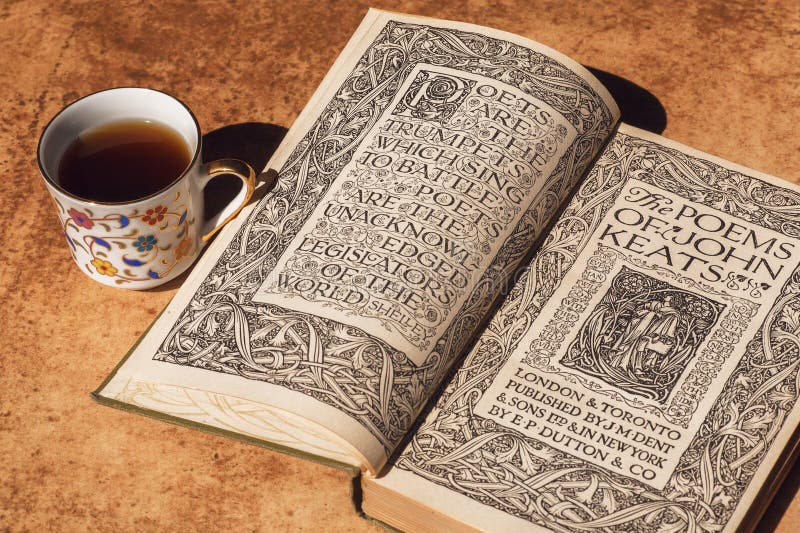 POETS
ARE THE
TRUMPETS
WHICH SING
TO BATTLE
POETS
ARE THE
UNACKNOWL
EDGED
LEGISLATORS
OF THE
WORLD SHELLEY
The POEMS
OF JOHN
KEATS
LONDON & TORONTO
PUBLISHED BY J.M.DENT
& SONS LTD & IN NEW YORK
BY E.P. DUTTON & CO